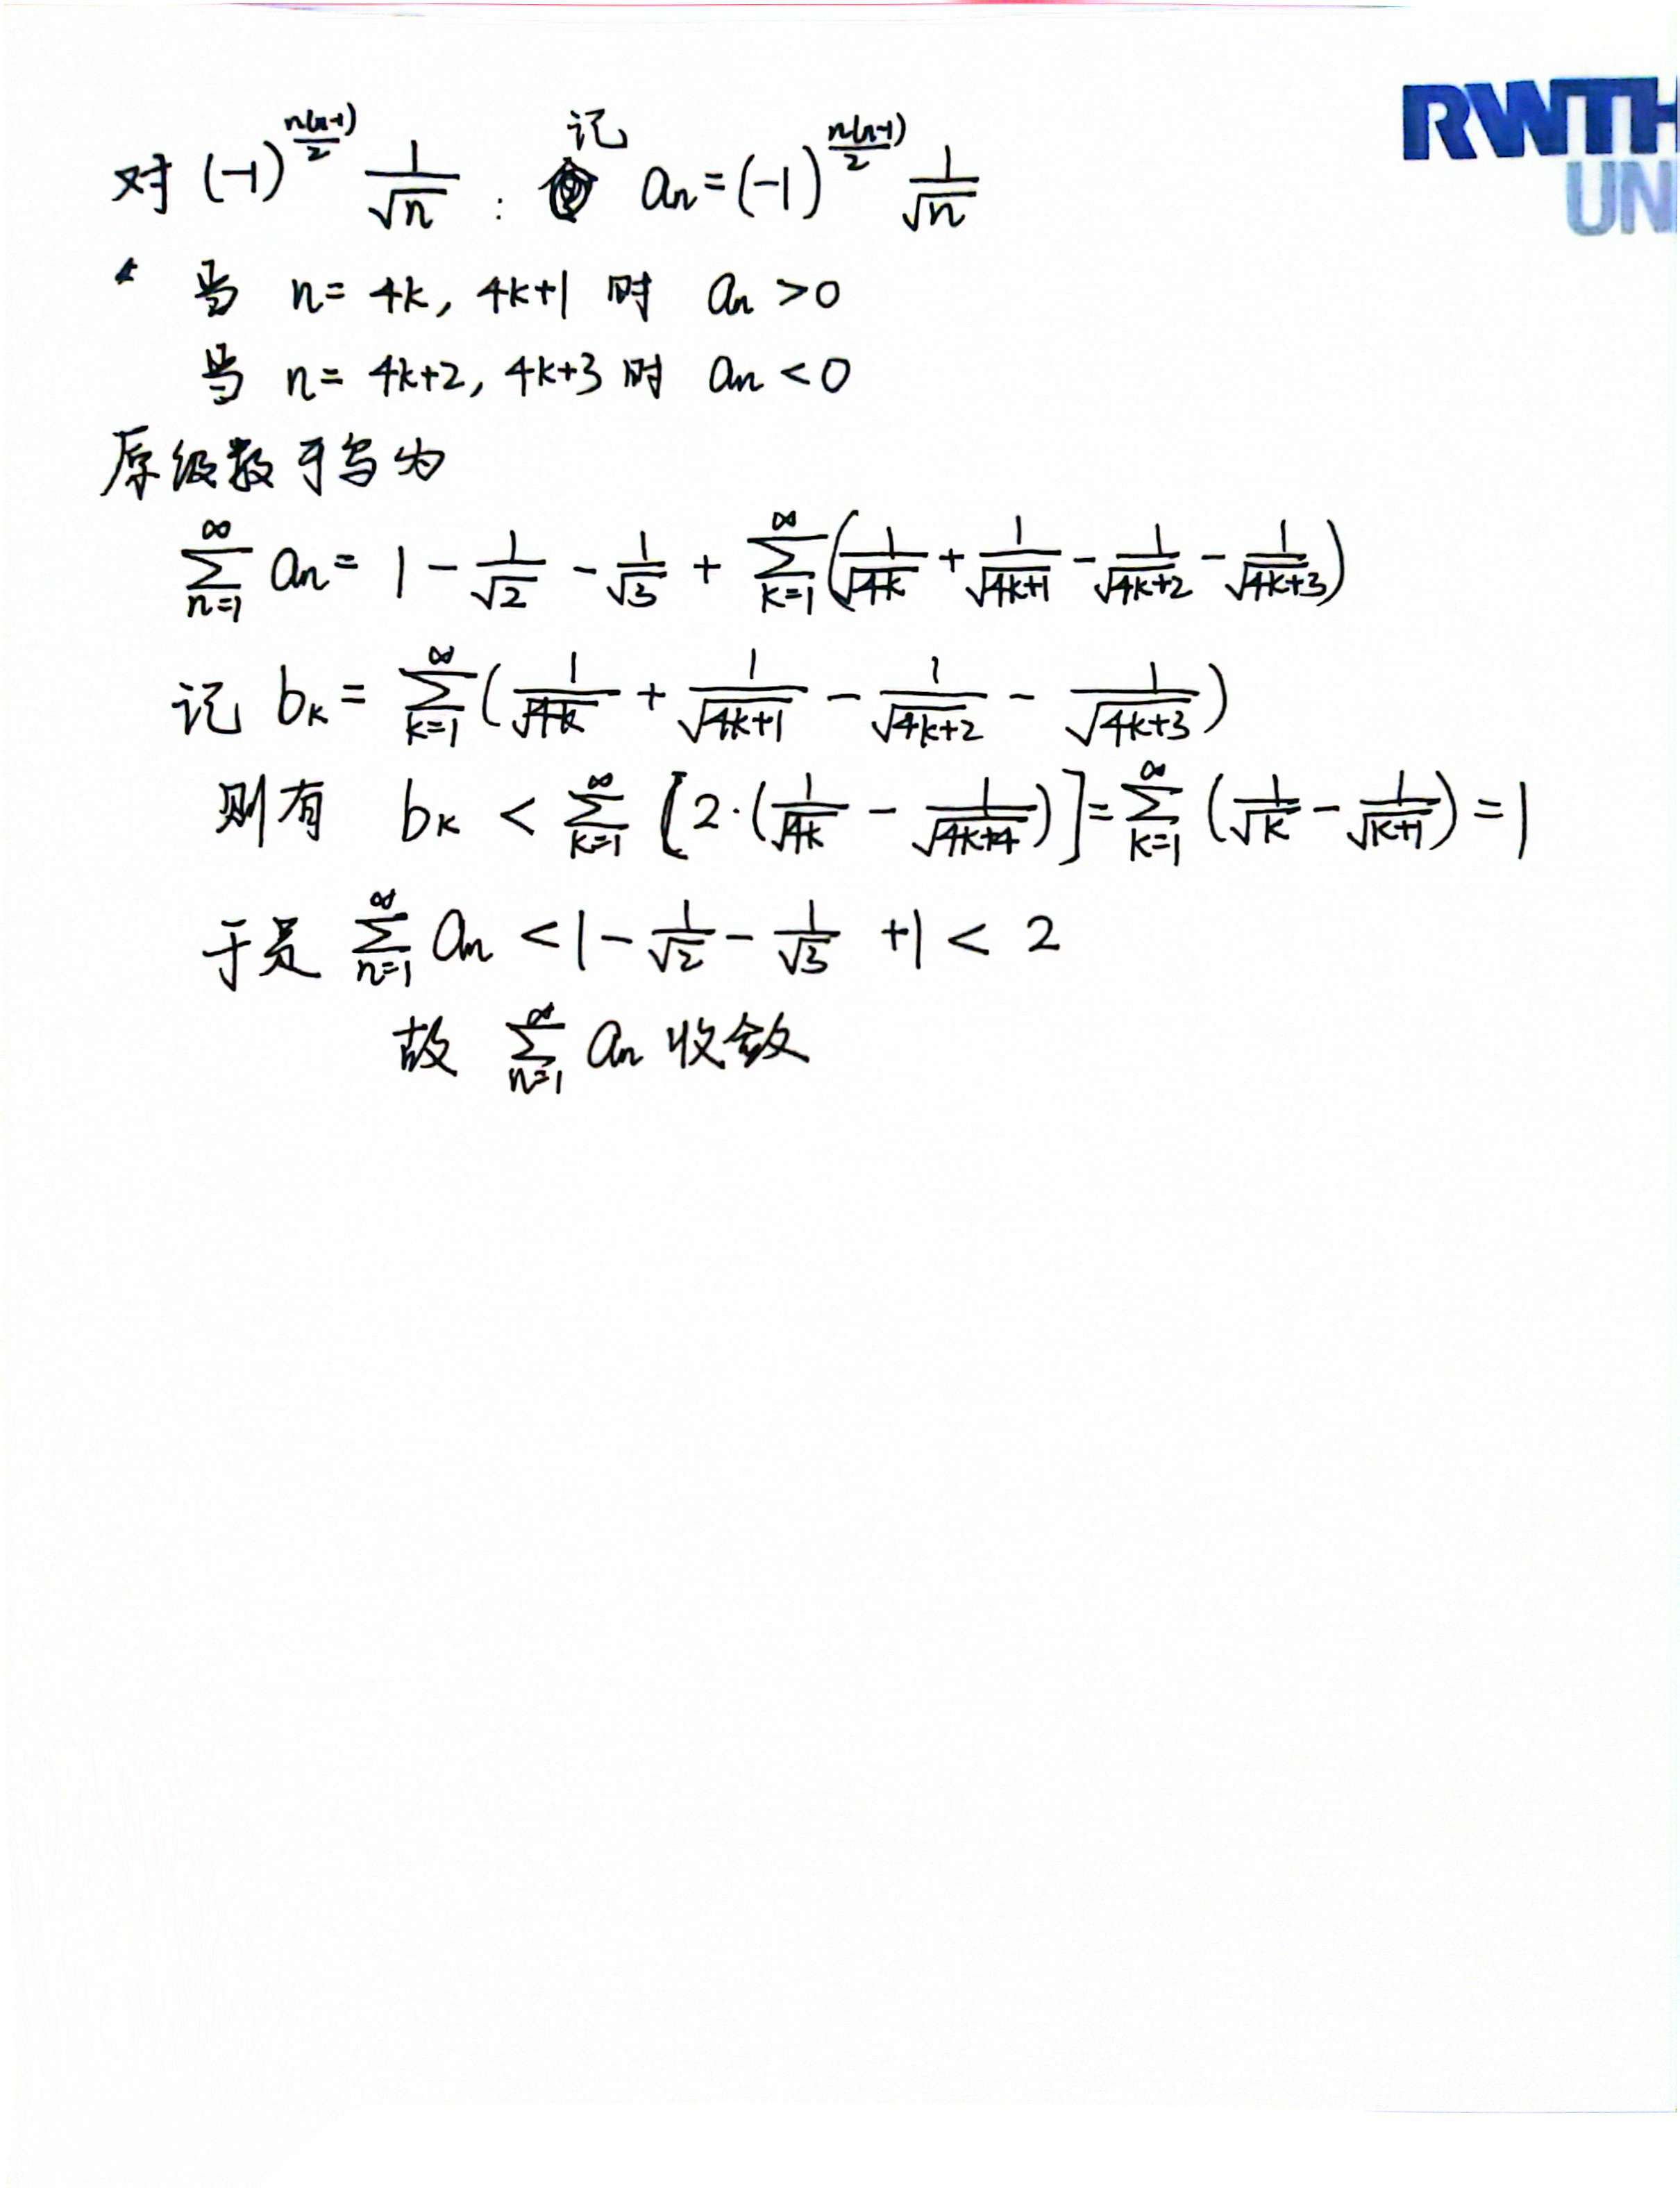 RWTH
UN
记
对 (-1)^{\frac{n(n-1)}{2}} \frac{1}{\sqrt{n}} : a_n = (-1)^{\frac{n(n-1)}{2}} \frac{1}{\sqrt{n}}
当 n = 4k, 4k+1 时 a_n > 0
当 n = 4k+2, 4k+3 时 a_n < 0
原级数可写为
\sum_{n=1}^{\infty} a_n = 1 - \frac{1}{\sqrt{2}} - \frac{1}{\sqrt{3}} + \sum_{k=1}^{\infty} (\frac{1}{\sqrt{4k}} + \frac{1}{\sqrt{4k+1}} - \frac{1}{\sqrt{4k+2}} - \frac{1}{\sqrt{4k+3}})
记 b_k = \sum_{k=1}^{\infty} (\frac{1}{\sqrt{4k}} + \frac{1}{\sqrt{4k+1}} - \frac{1}{\sqrt{4k+2}} - \frac{1}{\sqrt{4k+3}})
则有 b_k < \sum_{k=1}^{\infty} [2 \cdot (\frac{1}{\sqrt{4k}} - \frac{1}{\sqrt{4k+4}})] = \sum_{k=1}^{\infty} (\frac{1}{\sqrt{k}} - \frac{1}{\sqrt{k+1}}) = 1
于是 \sum_{n=1}^{\infty} a_n < 1 - \frac{1}{\sqrt{2}} - \frac{1}{\sqrt{3}} + 1 < 2
故 \sum_{n=1}^{\infty} a_n 收敛